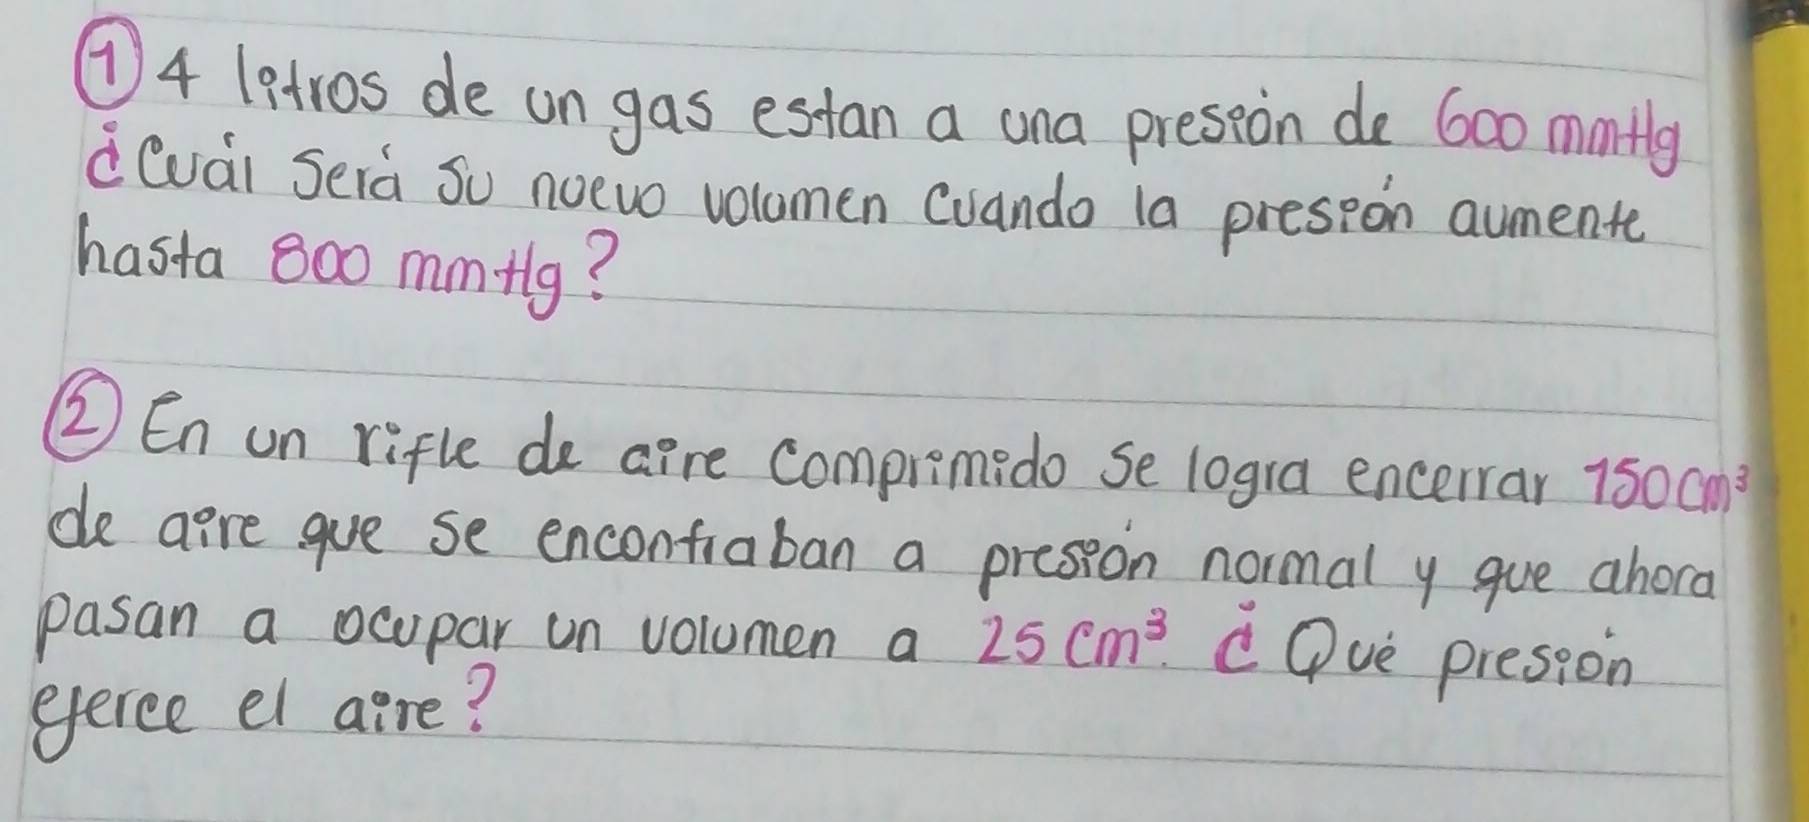 ① 4 litros de un gas estan a una presión de 600 mmHg
¿Cuál Será su nuevo volumen cuando la presión aumente
hasta 800 mmHg?
② En un rifle de aire comprimido se logra encerrar 150 cm³
de aire que se encontraban a presión normal y que ahora
pasan a ocupar un volumen a 25 cm³. ¿Qué presión
ejerce el aire?